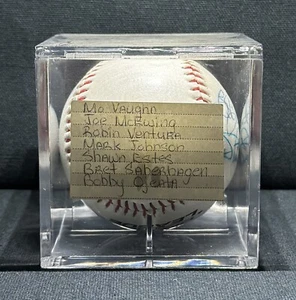 Mo Vaughn
Joe McEwing
Robin Ventura
Mark Johnson
Shawn Estes
Bret Saberhagen
Bobby Ojeda